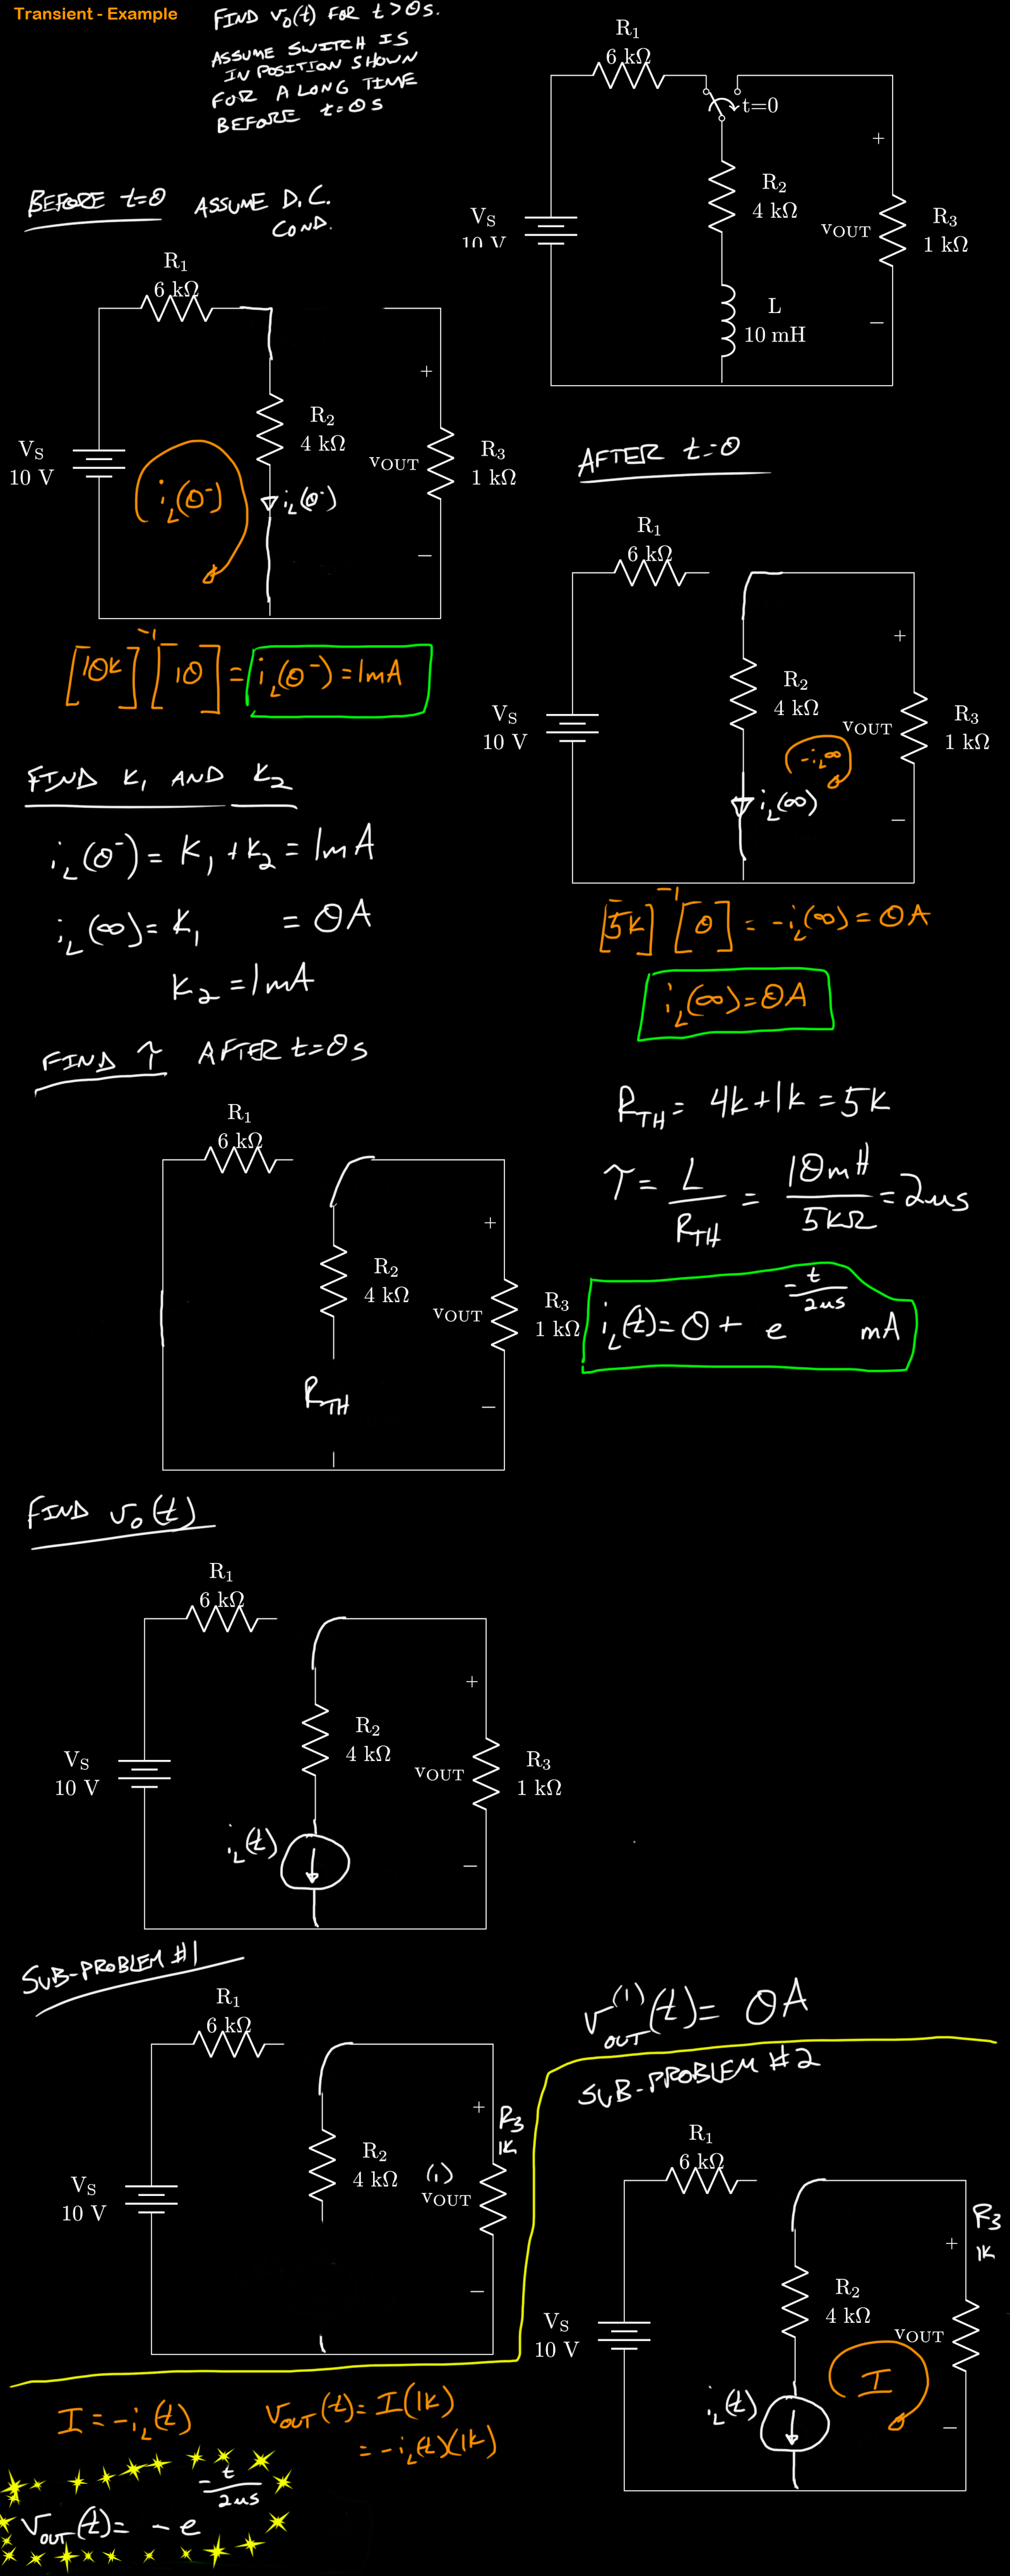 Transient - Example
FIND v₀(t) FOR t>0s.
ASSUME SWITCH IS
IN POSITION SHOWN
FOR A LONG TIME
BEFORE t=0s
R₁
6 kΩ
t=0
R₂
4 kΩ
V_S
10 V
v_OUT
+
−
R₃
1 kΩ
L
10 mH
BEFORE t=0 ASSUME D.C.
COND.
R₁
6 kΩ
R₂
4 kΩ
V_S
10 V
i_L(0⁻)
i_L(0⁻)
+
v_OUT
−
R₃
1 kΩ
[10k]⁻¹[10] = i_L(0⁻)=1mA
AFTER t=0
R₁
6 kΩ
R₂
4 kΩ
V_S
10 V
+
v_OUT
−
R₃
1 kΩ
-i_L∞
i_L(∞)
[5k]⁻¹[0] = -i_L(∞) = 0A
i_L(∞)=0A
FIND K₁ AND K₂
i_L(0⁻) = K₁ + K₂ = 1mA
i_L(∞) = K₁ = 0A
K₂ = 1mA
FIND τ AFTER t=0s
R₁
6 kΩ
R₂
4 kΩ
+
v_OUT
−
R₃
1 kΩ
R_TH
R_TH = 4k+1k = 5k
τ = L/R_TH = 10mH/5kΩ = 2us
i_L(t) = 0 + e^(-t/2us) mA
FIND v₀(t)
R₁
6 kΩ
R₂
4 kΩ
V_S
10 V
+
v_OUT
−
R₃
1 kΩ
i_L(t)
SUB-PROBLEM #1
R₁
6 kΩ
R₂
4 kΩ
V_S
10 V
+
(1)
v_OUT
−
R₃
1K
v_OUT⁽¹⁾(t) = 0A
SUB-PROBLEM #2
R₁
6 kΩ
R₂
4 kΩ
V_S
10 V
+
v_OUT
−
R₃
1K
i_L(t)
I
I = -i_L(t)
v_OUT(t) = I(1k)
= -i_L(t)(1k)
v_OUT(t) = - e^(-t/2us)